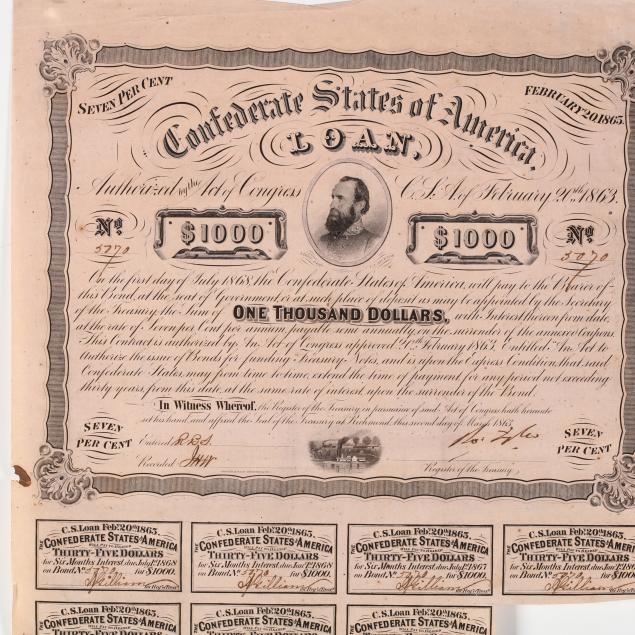 SEVEN PER CENT
FEBRUARY 20, 1863.
Confederate States of America.
LOAN,
Authorized by the Act of Congress C. S. A. of February 20th 1863.
No
5770
$1000
$1000
No
On the first day of July 1868, the Confederate States of America, will pay to the Bearer of
this Bond, at the seat of Government, or at such place of deposit as may be appointed by the Secretary
of the Treasury the Sum of ONE THOUSAND DOLLARS, with Interest thereon from date,
at the rate of Seven per Cent per annum, payable semi annually, on the surrender of the annexed Coupons.
This Contract is authorized by An Act of Congress approved 20th February 1863, Entitled "An Act to
Authorize the issue of Bonds for funding Treasury Notes, and is upon the Express Condition, that said
Confederate States may from time to time, extend the time of payment for any period not exceeding
thirty years from this date, at the same rate of interest upon the surrender of the Bond.
In Witness Whereof, the Register of the Treasury, in pursuance of said Act of Congress, hath hereunto
set his hand, and affixed the Seal of the Treasury, at Richmond, this second day of March 1863.
SEVEN
PER CENT
Entered
Recorded
Ro. Tyler
Register of the Treasury
SEVEN
PER CENT
C. S. Loan Feby. 20th 1863.
THE CONFEDERATE STATES OF AMERICA
WILL PAY TO BEARER
THIRTY-FIVE DOLLARS
for Six Months Interest due July 1st 1868
on Bond No 5770 for $1000.
C. S. Loan Feby. 20th 1863.
THE CONFEDERATE STATES OF AMERICA
WILL PAY TO BEARER
THIRTY-FIVE DOLLARS
for Six Months Interest due Jany. 1st 1868
on Bond No 5770 for $1000.
C. S. Loan Feby. 20th 1863.
THE CONFEDERATE STATES OF AMERICA
WILL PAY TO BEARER
THIRTY-FIVE DOLLARS
for Six Months Interest due July 1st 1867
on Bond No 5770 for $1000.
C. S. Loan Feby. 20th 1863.
THE CONFEDERATE STATES OF AMERICA
WILL PAY TO BEARER
THIRTY-FIVE DOLLARS
for Six Months Interest due Jany. 1st 1867
on Bond No 5770 for $1000.
C. S. Loan Feby. 20th 1863.
THE CONFEDERATE STATES OF AMERICA
WILL PAY TO BEARER
THIRTY-FIVE DOLLARS
C. S. Loan Feby. 20th 1863.
THE CONFEDERATE STATES OF AMERICA
WILL PAY TO BEARER
THIRTY-FIVE DOLLARS
C. S. Loan Feby. 20th 1863.
THE CONFEDERATE STATES OF AMERICA
WILL PAY TO BEARER
THIRTY-FIVE DOLLARS